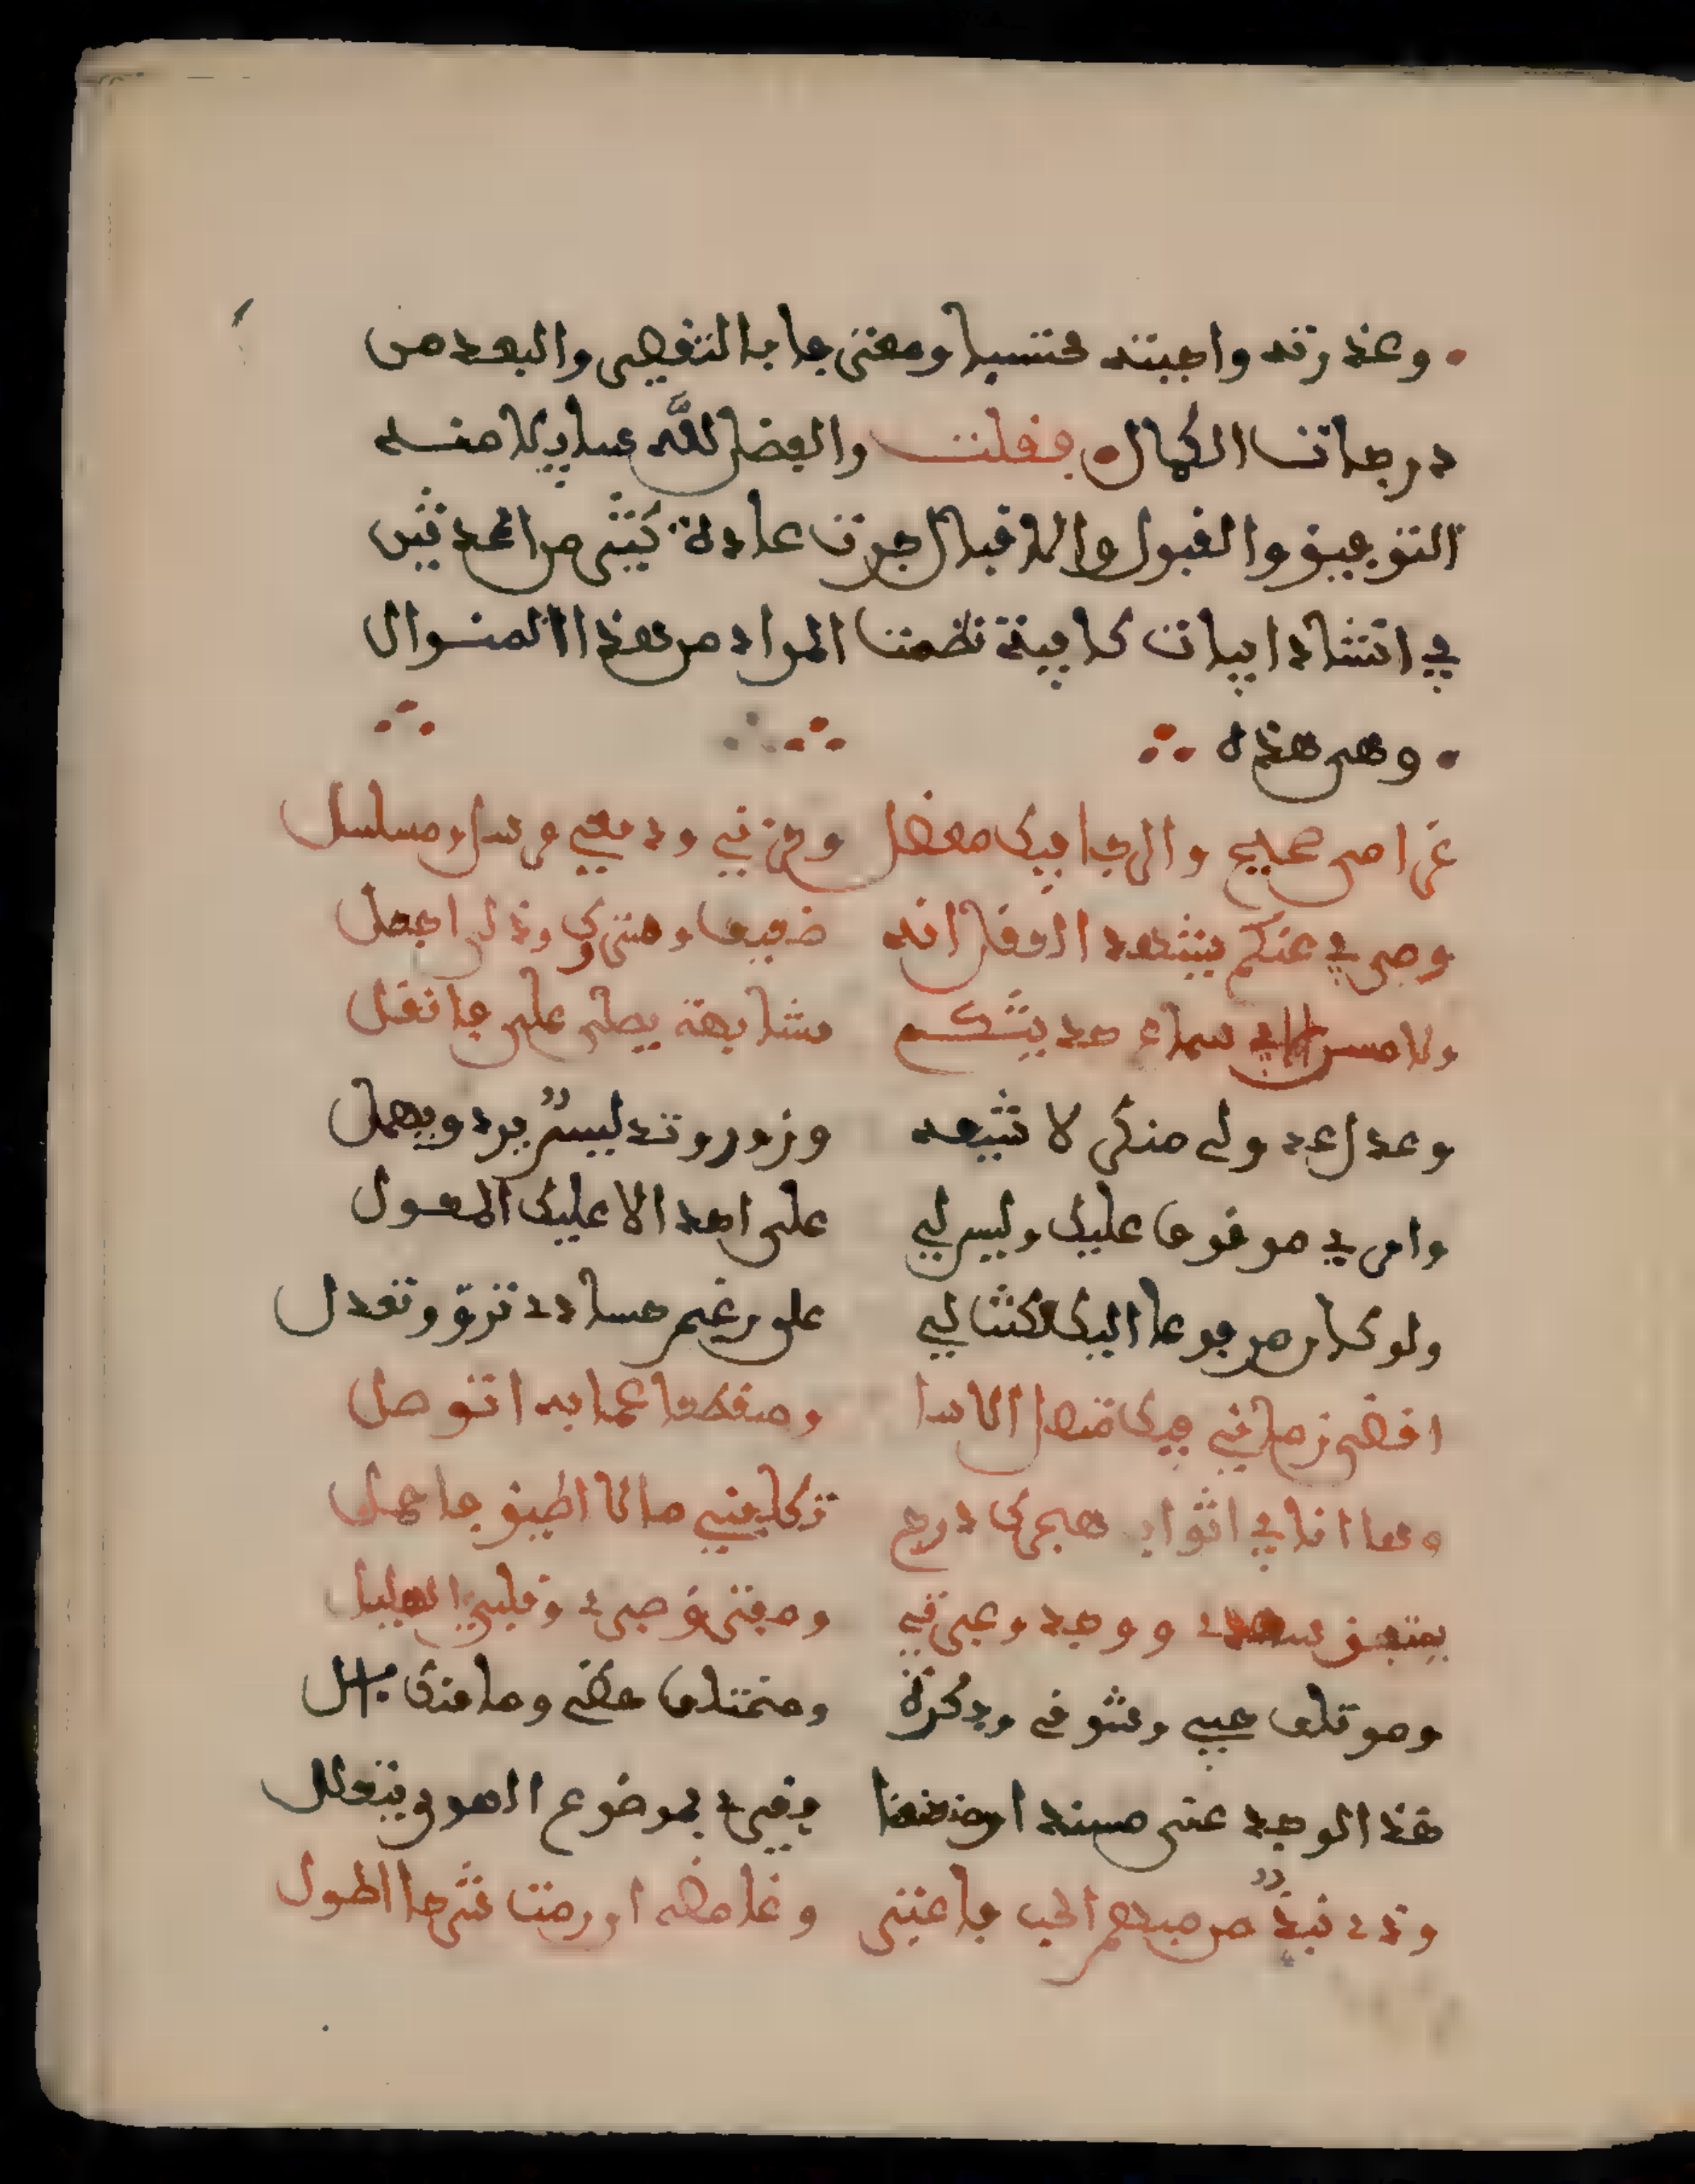 وعذرته واجبته محتسبا ومعترفا بالتقصير والبعد من
درجات الكمال فقلت والفضل لله سايلا منه
التوفيق والقبول والاقبال جرت عادة كثير من المحدثين
في انشاد ابيات كافية نظمت المراد من هذا المنوال
وهي هذه
غرامي صحيح والرجا فيك معضل وحزني ودمعي مرسل ومسلسل
وصبري عنكم يشهد العقل انه ضعيف ومتروك وذلي اجمل
ولا حسن الا سماع حديثكم مشابهة يملى علي فانقل
وعذل عذولي منكر لا نسيغه وزور وتدليس يرد ويهمل
وامري موقوف عليك وليس لي على احد الا عليك المعول
ولو كان مرفوعا اليك لكنت لي على رغم حسادي ترق وتعدل
اقضي زماني فيك متصل الاسا ومنقطعا عما به اتوصل
وها انا في اثواب هجرك مدرج تكلفني ما لا اطيق فاحمل
ومفترق صبري وقلبي
وموتلف حبي وشوقي وذكره ومختلف حظي وما منك
خذ الوجد عني مسندا ومعنعنا فغيري بموضوع الهوى يتعلل
وذي نبذ من مبهم الحب فاعتبر وغامضه ان رمت شرحا اطول